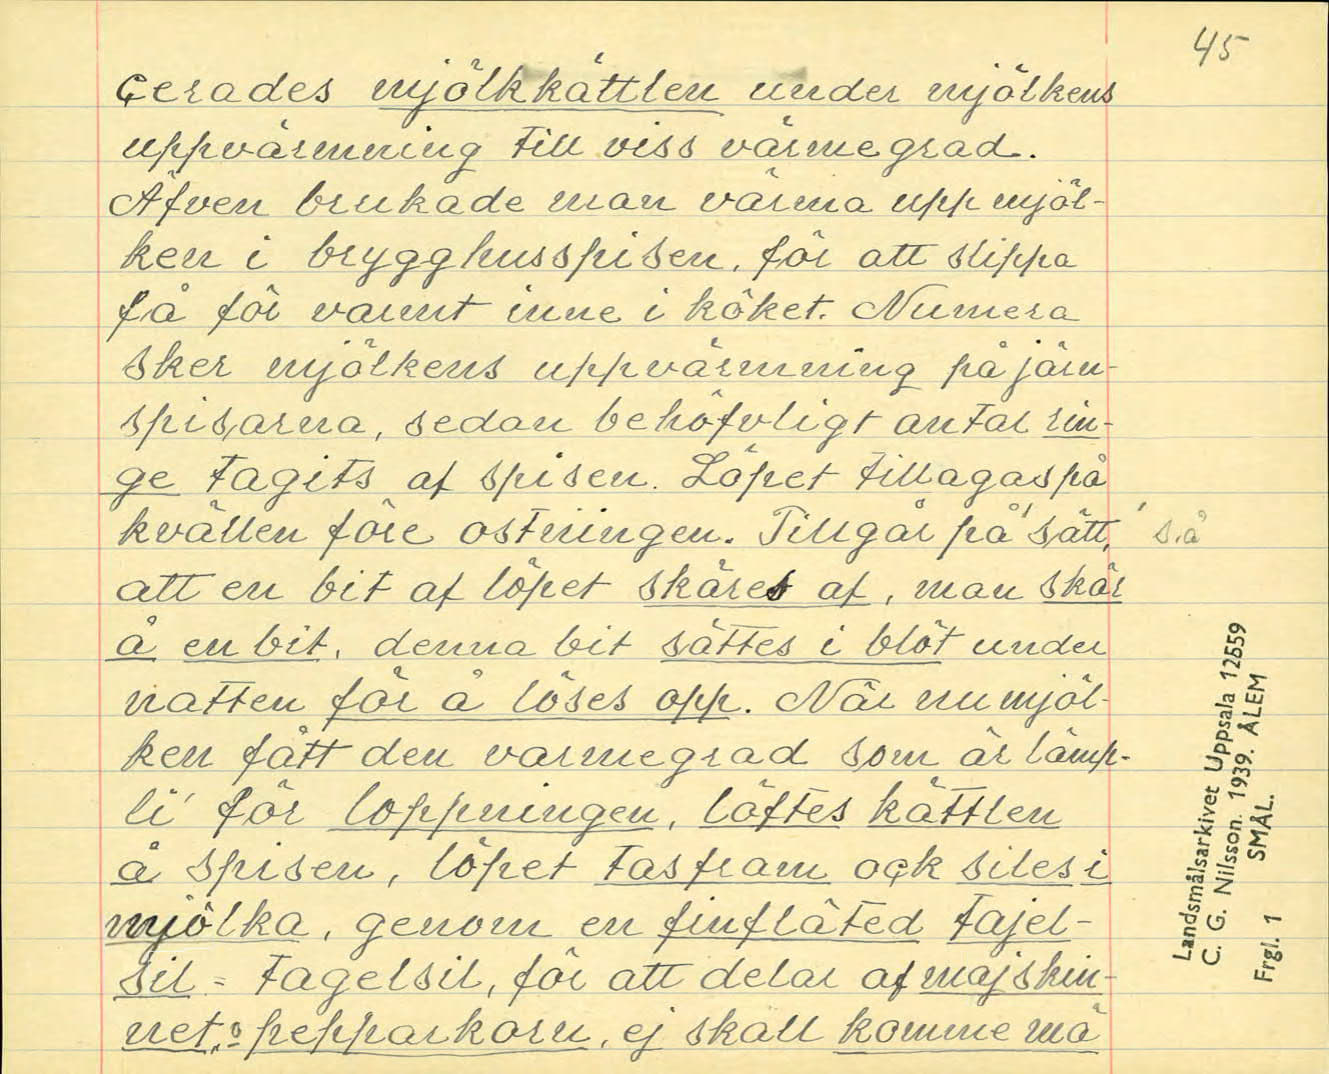 45
cerades mjölkkättlen under mjölkens
uppvärmning till viss värmegrad.
Äfven brukade man värma upp mjöl-
ken i brygghusspisen, för att slippa
få för varmt inne i köket. Numera
sker mjölkens uppvärmning på järn-
spisarna, sedan behöfvligt antal rin-
ge tagits af spisen. Löpet tillagas på
kvällen före ostningen. Tillgår på' sätt, ' s.å
att en bit af löpet skäres af, man skär
å en bit, denna bit sättes i blöt under
natten för å löses opp. När nu mjöl-
ken fått den varmegrad som är lämp-
li' för loppningen, löftes kättlen
å spisen, löpet tas fram ock siles i
mjölka, genom en finfläted tajel-
sil = tagelsil, för att delar af majskin-
net, o pepparkorn, ej skall komme mä
Landsmålsarkivet Uppsala 12559
C. G. Nilsson. 1939. ÅLEM
Frgl. 1 SMÅL.